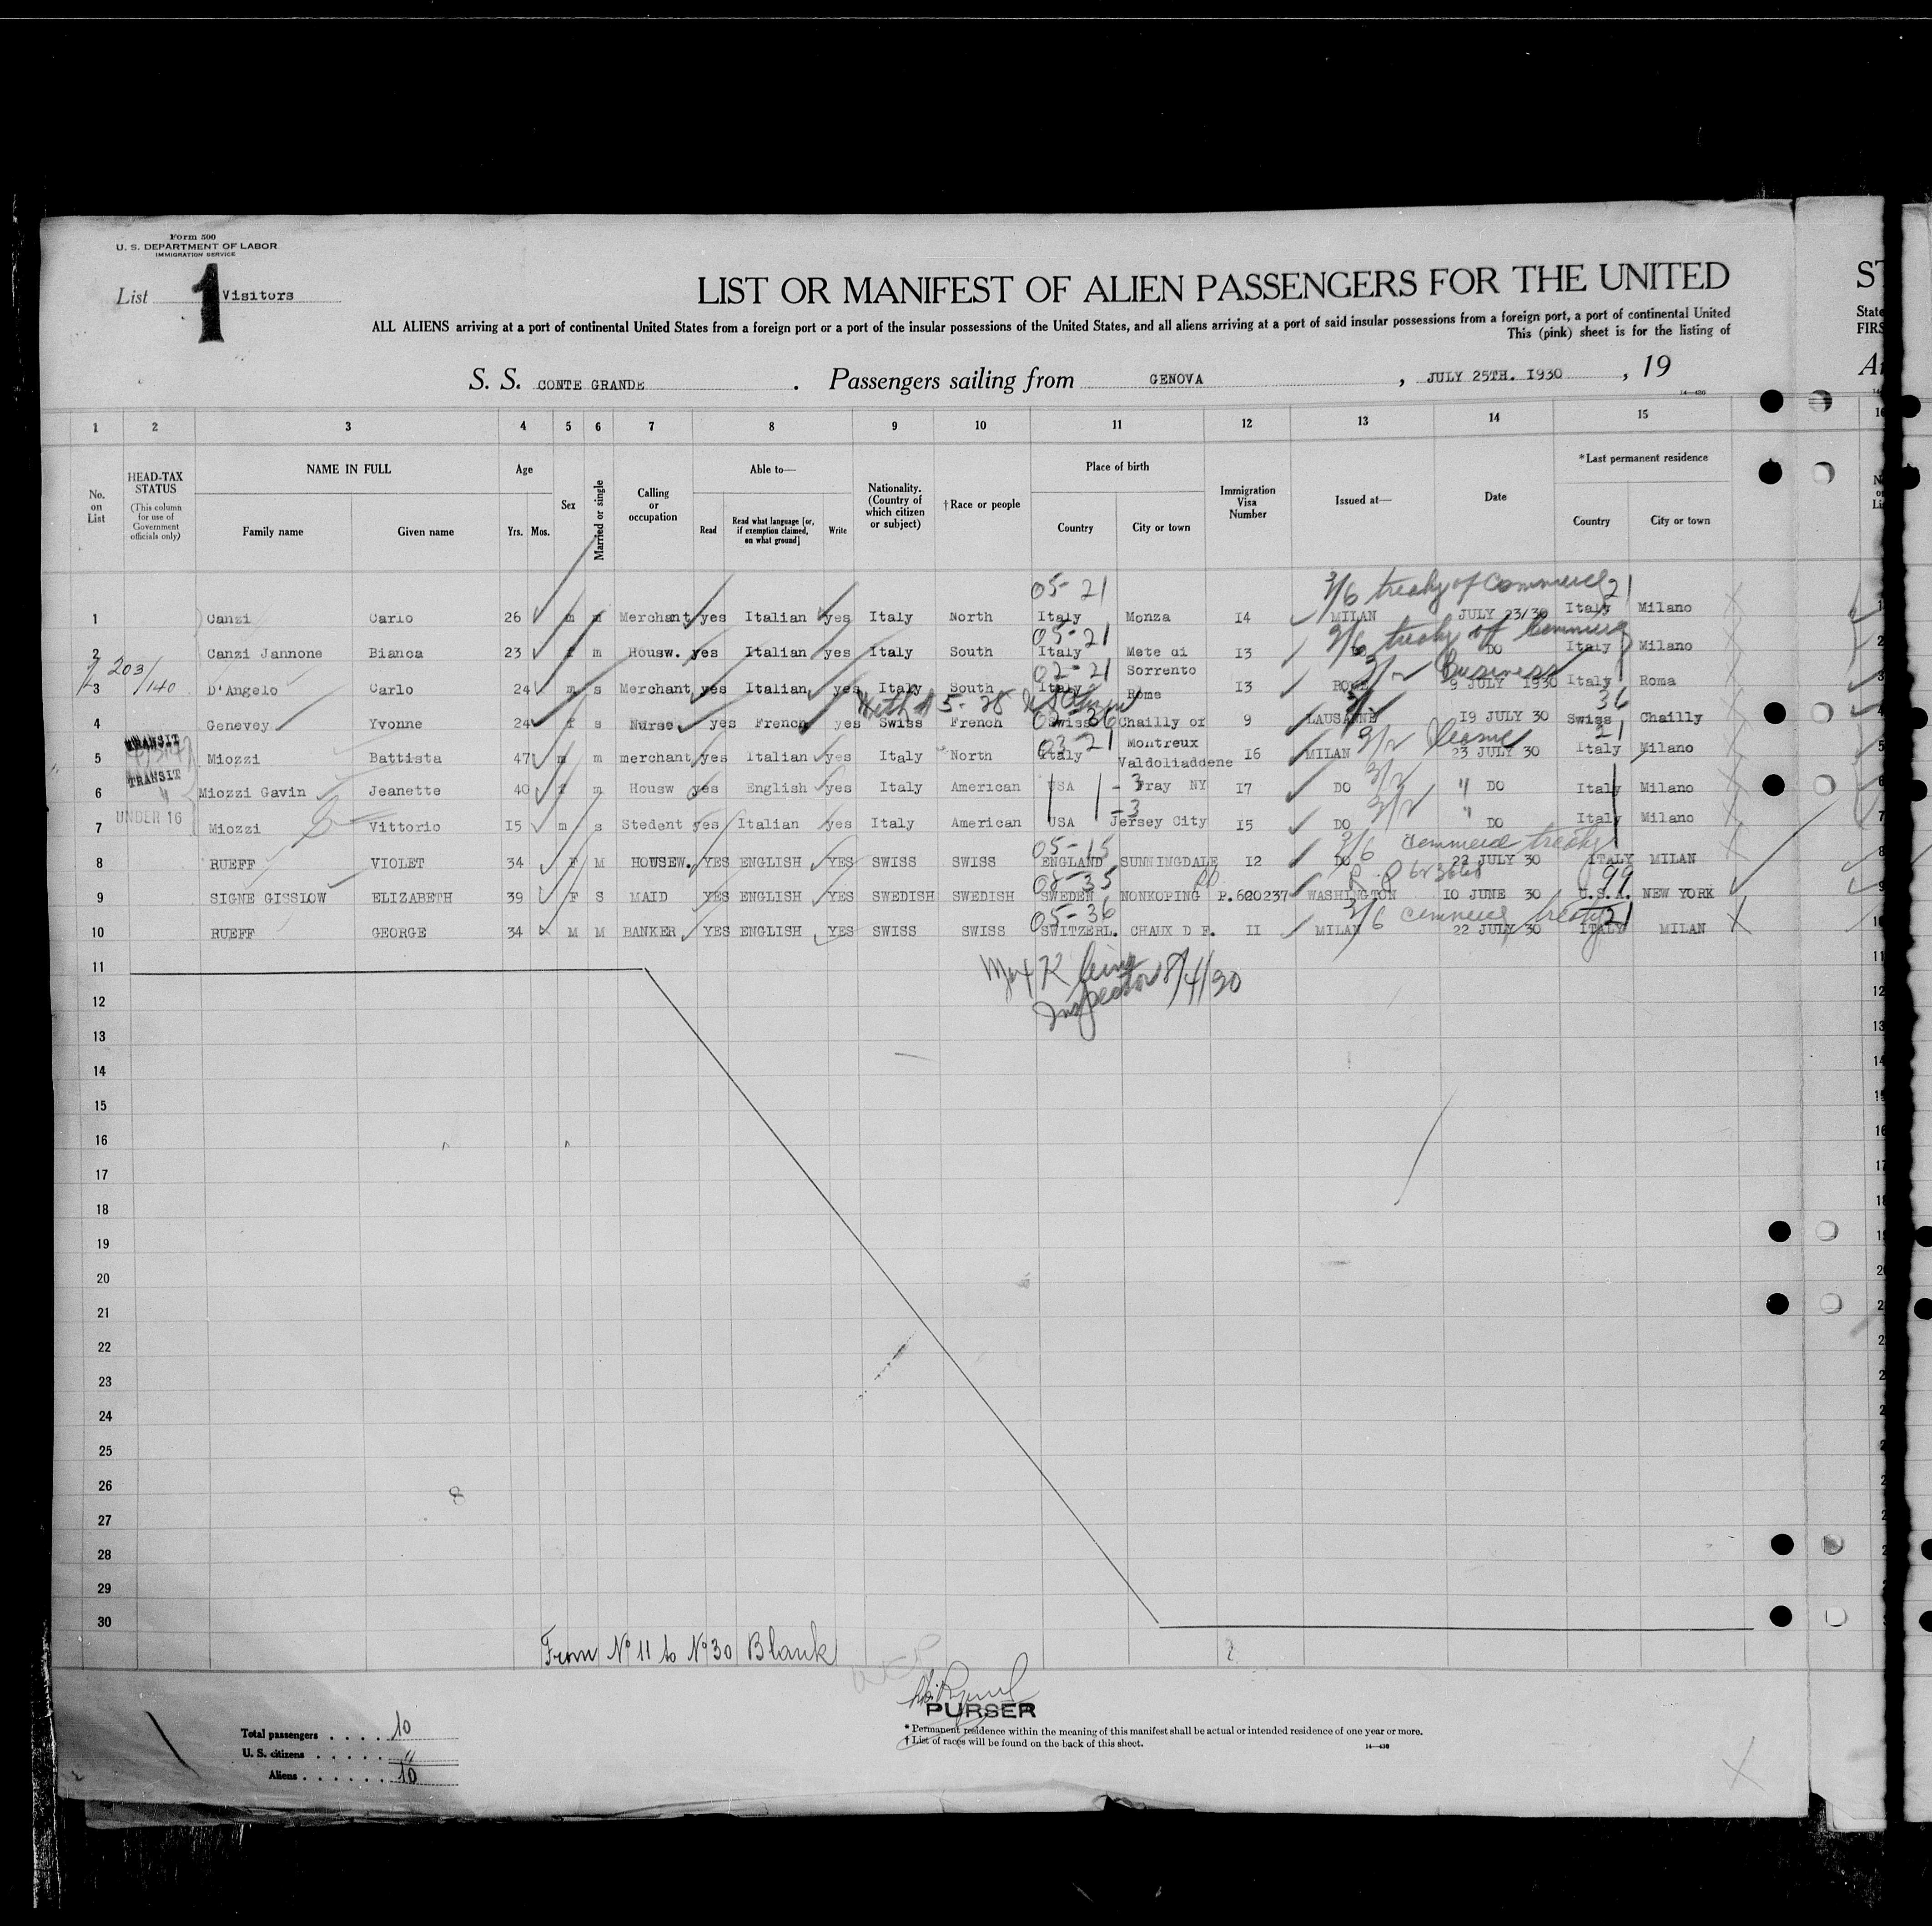 Form 500
U. S. DEPARTMENT OF LABOR
IMMIGRATION SERVICE
List 1 Visitors
LIST OR MANIFEST OF ALIEN PASSENGERS FOR THE UNITED
ST
ALL ALIENS arriving at a port of continental United States from a foreign port or a port of the insular possessions of the United States, and all aliens arriving at a port of said insular possessions from a foreign port, a port of continental United
State
This (pink) sheet is for the listing of
FIRS
S. S. CONTE GRANDE . Passengers sailing from GENOVA , JULY 25TH. I930 , 19
14—430
1 2 3 4 5 6 7 8 9 10 11 12 13 14 15
No. on List
HEAD-TAX STATUS
(This column for use of Government officials only)
NAME IN FULL
Family name Given name
Age
Yrs. Mos.
Sex
Married or single
Calling or occupation
Able to—
Read
Read what language [or, if exemption claimed, on what ground]
Write
Nationality. (Country of which citizen or subject)
†Race or people
Place of birth
Country City or town
Immigration Visa Number
Issued at—
Date
*Last permanent residence
Country City or town
05-21 3/6 treaty of Commerce 21
1 Canzi Carlo 26 m m Merchant yes Italian yes Italy North Italy Monza I4 MILAN JULY 23/30 Italy Milano
05-21 3/6 treaty of Commerce
2 Canzi Jannone Bianca 23 f m Housw. yes Italian yes Italy South Italy Mete di Sorrento I3 DO DO Italy Milano
203/140 02-21 3/2 Business
3 D'Angelo Carlo 24 m s Merchant yes Italian yes Italy South Italy Rome I3 ROME 9 JULY I930 Italy Roma
36
4 Genevey Yvonne 24 f s Nurse yes French yes Swiss French Swiss Chailly or Montreux 9 LAUSANNE I9 JULY 30 Swiss Chailly
TRANSIT 03-21 3/2 21
5 Miozzi Battista 47 m m merchant yes Italian yes Italy North Italy Valdoliaddene I6 MILAN 23 JULY 30 Italy Milano
TRANSIT 3/2
6 Miozzi Gavin Jeanette 40 f m Housw yes English yes Italy American USA Tray NY I7 DO " DO Italy Milano
UNDER 16 3/2
7 Miozzi Vittorio I5 m s Stedent yes Italian yes Italy American USA Jersey City I5 DO " DO Italy Milano
05-15 3/6 commerce treaty
8 RUEFF VIOLET 34 F M HOUSEW. YES ENGLISH YES SWISS SWISS ENGLAND SUNNINGDALE I2 DO 22 JULY 30 ITALY MILAN
08-35 99
9 SIGNE GISSLOW ELIZABETH 39 F S MAID YES ENGLISH YES SWEDISH SWEDISH SWEDEN NONKOPING P.620237 WASHINGTON I0 JUNE 30 U.S.A. NEW YORK
05-36 3/6 commerce treaty 21
10 RUEFF GEORGE 34 M M BANKER YES ENGLISH YES SWISS SWISS SWITZERL. CHAUX D F. II MILAN 22 JULY 30 ITALY MILAN
11
Inspector 8/4/30
12
13
14
15
16
17
18
19
20
21
22
23
24
25
26
27
28
29
30
From Nº 11 to Nº 30 Blank
PURSER
Total passengers . . . . 10
U. S. citizens . . . . . "
Aliens . . . . . . 10
* Permanent residence within the meaning of this manifest shall be actual or intended residence of one year or more.
† List of races will be found on the back of this sheet.
14—430